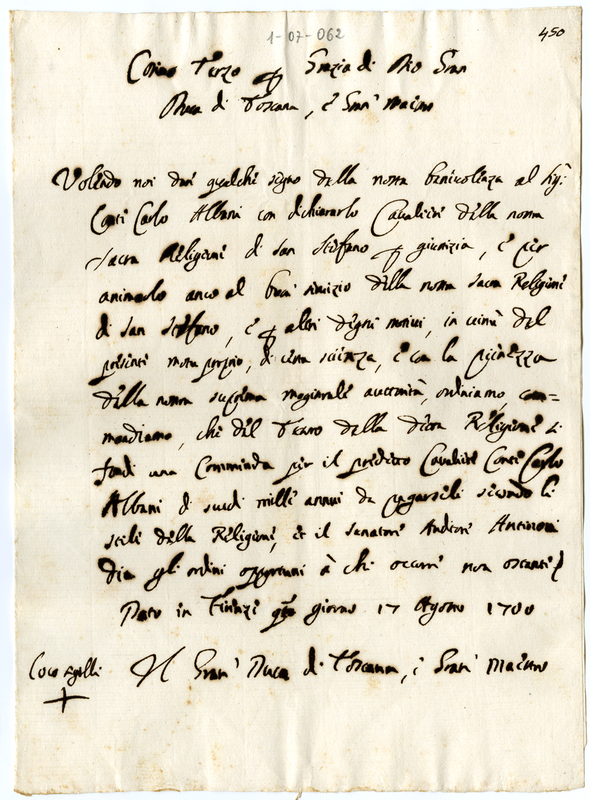 1-07-062
450
Cosimo Terzo p Grazia di Dio Gran
Duca di Toscana, è Gran Maestro
Volendo noi dar qualche segno della nostra benivolenza al Sig:
Conte Carlo Albani con dichiararlo Cavaliere della nostra
Sacra Religione di San Stefano p giustizia, è per
animarlo anco al buon servizio della nostra Sacra Religione
di San Stefano, è p altri degni motivi, in virtù del
presente motu proprio, di certa scienza, è con la pienezza
della nostra suprema magistrale auttorità, ordiniamo, com=
mandiamo, che dal Tesoro della detta Religione si
fondi una Commenda per il predetto Cavaliere Conte Carlo
Albani di scudi mille annui da pagarseli secondo li
stili della Religione, et il Senatore Auditore Antinori
dia gli ordini opportuni à che occorre non ostante
Dato in Firenze qto giorno 17 Agosto 1700
Il Gran Duca di Toscana, è Gran Maestro